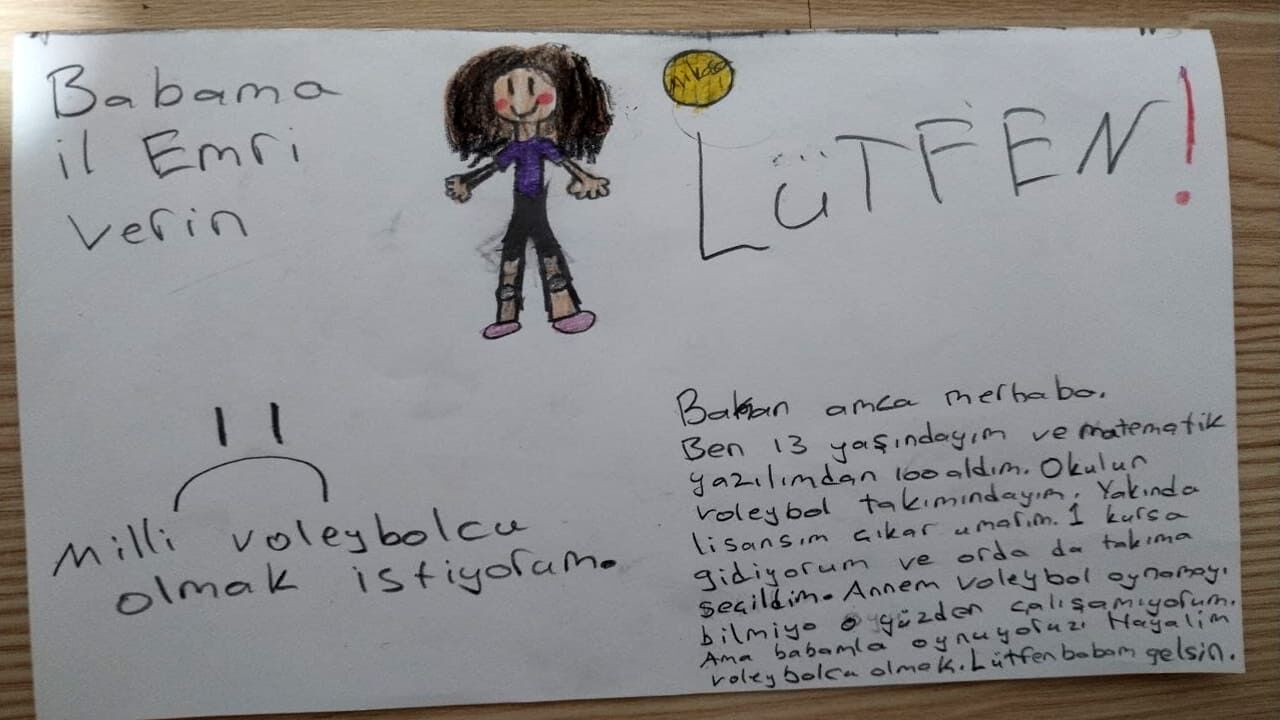 Babama
il Emri
Verin
Mikasa
LÜTFEN!
Milli voleybolcu
olmak istiyorum.
Bakan amca merhaba.
Ben 13 yaşındayım ve matematik
yazılımdan 100 aldım. Okulun
voleybol takımındayım. Yakında
lisansım çıkar umarım. 1 kursa
gidiyorum ve orda da takıma
seçildim. Annem voleybol oynamayı
bilmiyo o yüzden çalışamıyorum.
Ama babamla oynuyoruz. Hayalim
voleybolcu olmak. Lütfen babam gelsin.